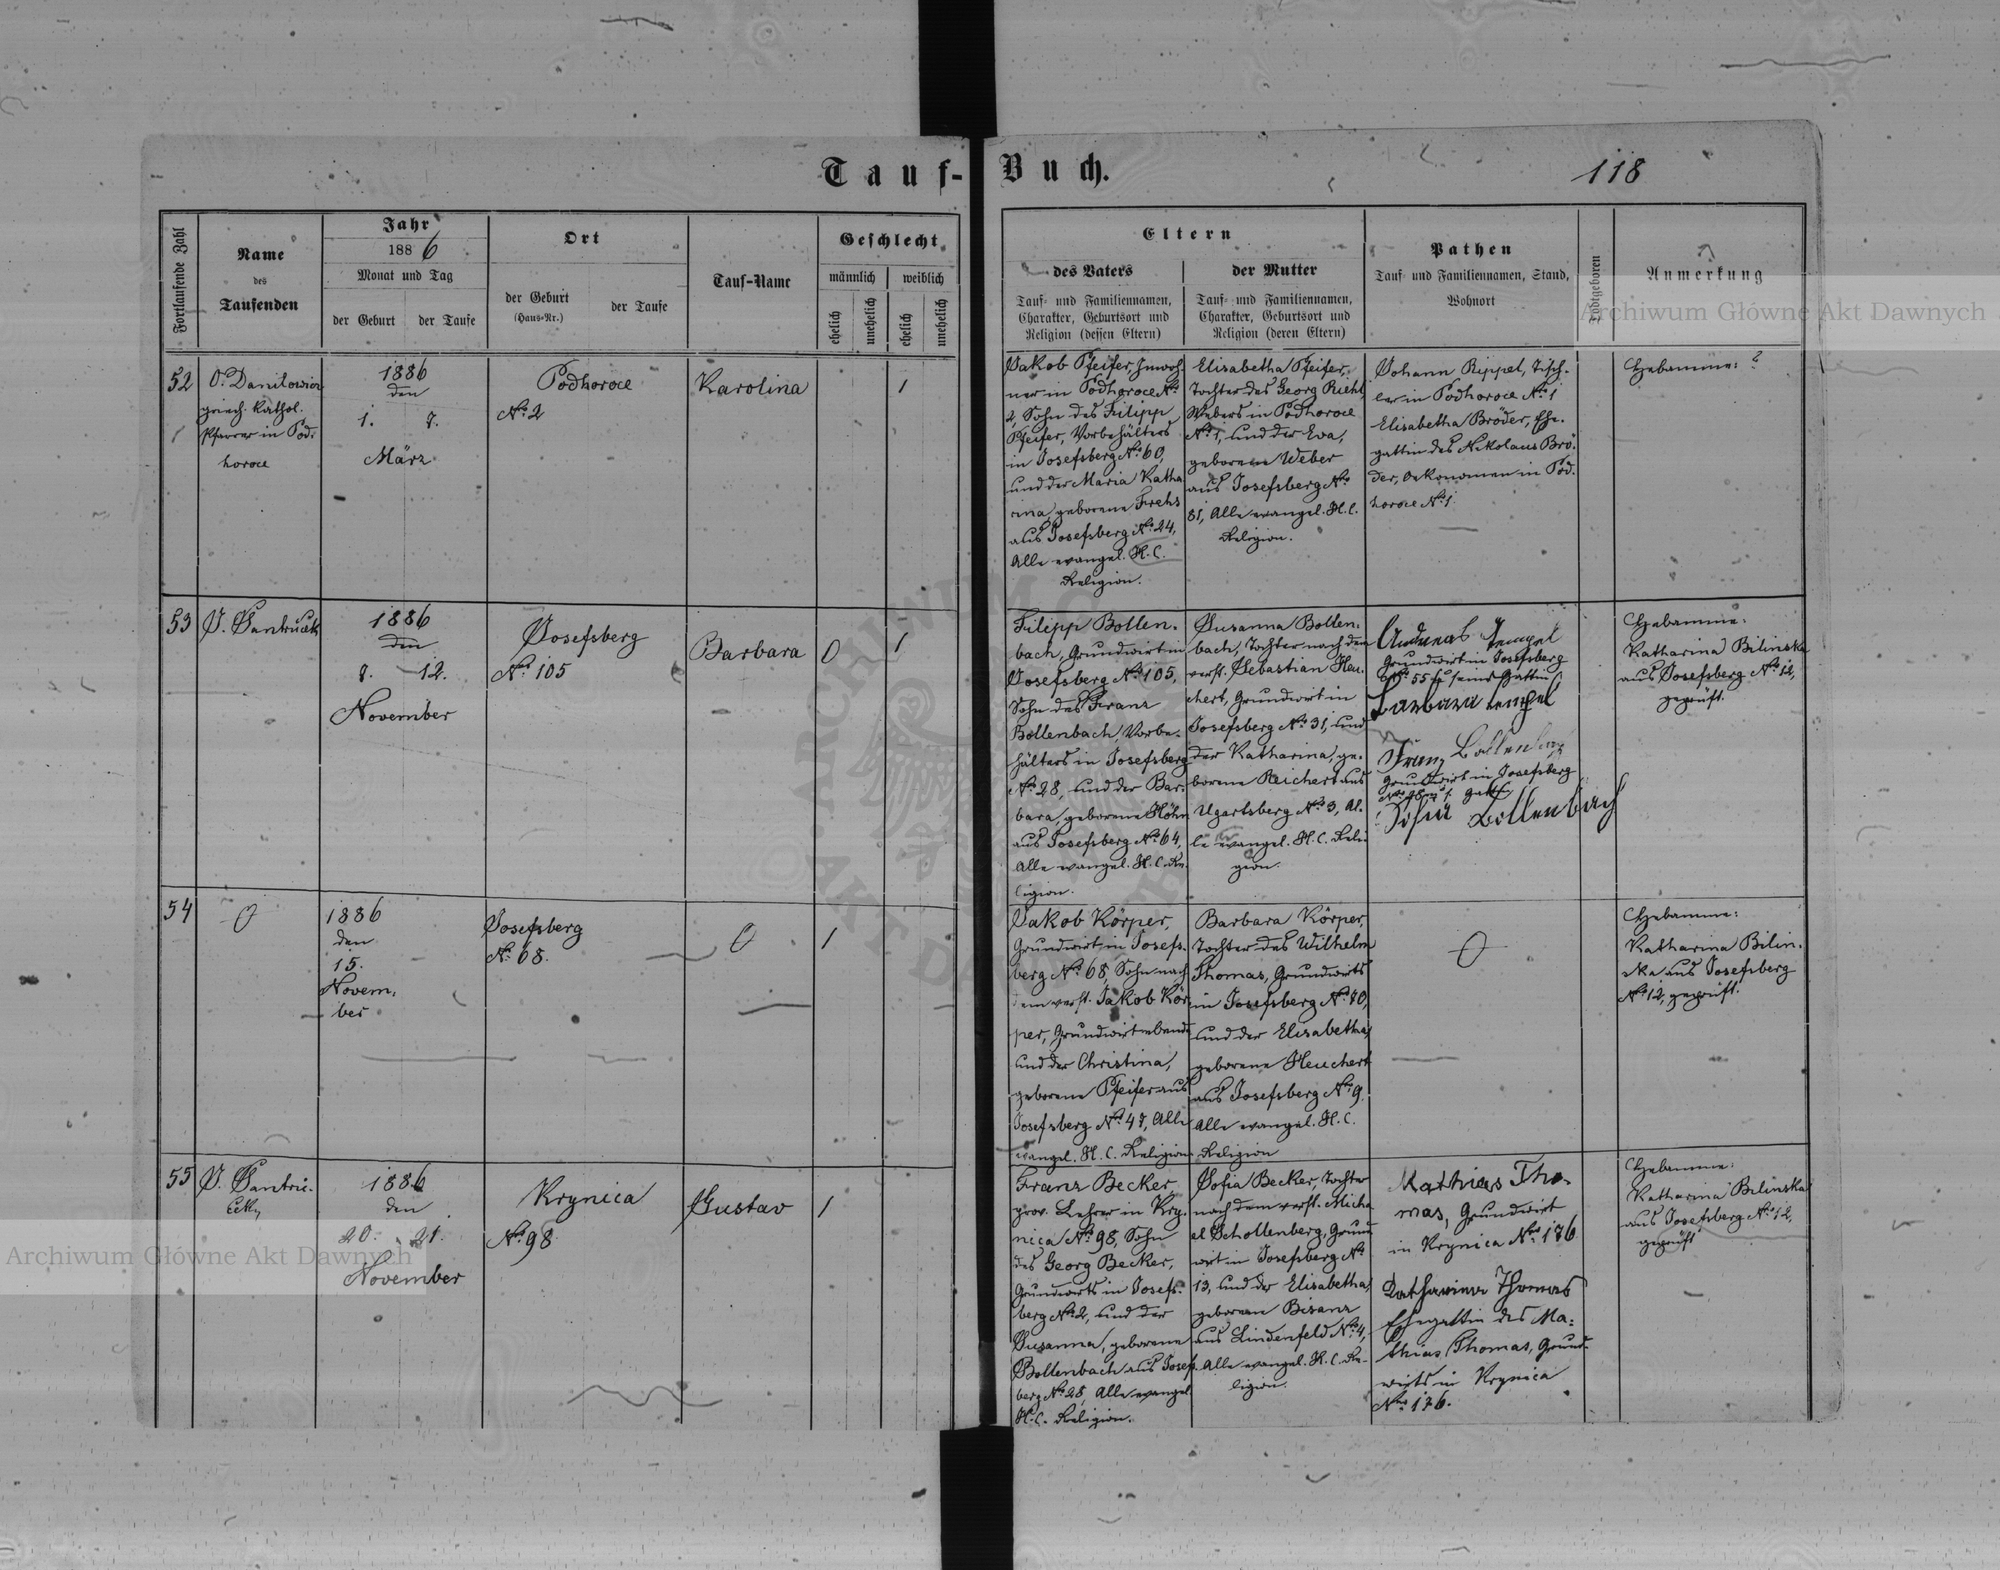 Tauf-Buch.
118
Fortlaufende Zahl
Name
des
Taufenden
Jahr
1886
Monat und Tag
der Geburt
der Taufe
Ort
der Geburt
(Haus-Nr.)
der Taufe
Tauf-Name
Geschlecht
männlich
weiblich
ehelich
unehelich
ehelich
unehelich
Eltern
des Vaters
Tauf- und Familiennamen,
Charakter, Geburtsort und
Religion (dessen Eltern)
der Mutter
Tauf- und Familiennamen,
Charakter, Geburtsort und
Religion (deren Eltern)
Pathen
Tauf- und Familiennamen, Stand,
Wohnort
Todtgeboren
Anmerkung
52
O. Danilowicz
griech. kathol.
Pfarrer in Pod-
horoce
1886
den
1. 7.
März
Podhoroce
No. 2
Karolina
1
Jakob Pfeifer, Inwoh-
ner in Podhoroce No.
2, Sohn des Filipp
Pfeifer, Vorbehälters
in Josefsberg No. 60,
und der Maria Katha
rina, geborene Frehs
aus Josefsberg No. 24,
Alle evangel. H. C.
Religion.
Elisabetha Pfeifer,
Tochter des Georg
Webers in Podhoroce
No. 1, und der Eva,
geborene Weber
aus Josefsberg No.
81, Alle evangel. H. C.
Religion.
Johann Rippel, Tisch-
ler in Podhoroce No. 1
Elisabetha Bröder, Ehe-
gattin des Nikolaus Brö-
der, Oekonomen in Pod-
horoce No. 1
Hebamme: ?
53
J. Jantrucek
1886
den
8. 12.
November
Josefsberg
No. 105
Barbara
0
1
Filipp Bollen-
bach, Grundwirt in
Josefsberg No. 105,
Sohn des Franz
Bollenbach, Vorbe-
hälters in Josefsberg
No. 28, und der Bar-
bara, geborene Höhn
aus Josefsberg No. 64,
Alle evangel. H. C. Re-
ligion.
Susanna Bollen-
bach, Tochter nach dem
verst. Sebastian Heu-
chert, Grundwirt in
Josefsberg No. 31, und
der Katharina, ge-
borene Reichert aus
Ugartsberg No. 3, Al-
le evangel. H. C. Reli-
gion.
Andreas Tempel
Grundwirt in Josefsberg
No. 55 u. seine Gattin
Barbara Tempel
Franz Bollenbach
Grundwirt in Josefsberg
Sofia Bollenbach
Hebamme:
Katharina Bilinska
aus Josefsberg No. 12,
geprüft.
54
0
1886
den
15.
Novem-
ber
Josefsberg
No. 68.
0
1
Jakob Körper,
Grundwirt in Josefs-
berg No. 68, Sohn nach
dem verst. Jakob Kör-
per, Grundwirt ebenda
und der Christina,
geborene Pfeifer aus
Josefsberg No. 47, Alle
evangel. H. C. Religion
Barbara Körper,
Tochter des Wilhelm
Thomas, Grundwirts
in Josefsberg No. 80,
und der Elisabetha,
geborene Heuchert
aus Josefsberg No. 9.
Alle evangel. H. C.
Religion
0
Hebamme:
Katharina Bilin-
ska aus Josefsberg
No. 12, geprüft.
55
J. Jantru-
cek
1886
den
20. 21.
November
Krynica
No. 98
Gustav
1
Franz Becker
prov. Lehrer in Kry-
nica No. 98, Sohn
des Georg Becker,
Grundwirts in Josefs-
berg No. 2, und der
Susanna, geborene
Bollenbach aus Josef-
berg No. 28, Alle evangel
H. C. Religion.
Sofia Becker, Tochter
nach dem verst. Micha
el Schollenberg, Grund
wirt in Josefsberg No.
13, und der Elisabetha,
geborene Bisanz
aus Lindenfeld No. 4,
Alle evangel. H. C. Re-
ligion.
Mathias Tho-
mas, Grundwirt
in Krynica No. 176
Katharina Thomas
Ehegattin des Ma-
thias Thomas, Grund-
wirts in Krynica
No. 176.
Hebamme:
Katharina Bilinska
aus Josefsberg No. 12,
geprüft
Archiwum Główne Akt Dawnych
Archiwum Główne Akt Dawnych